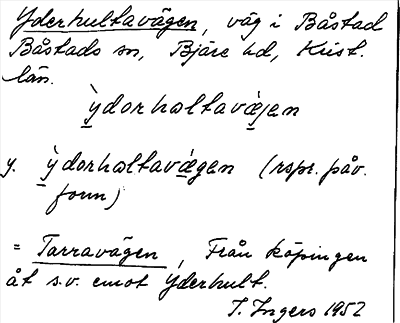 Yderhultavägen, väg i Båstad
Båstads sn, Bjäre hd, Krist.
län.
ỳdorhɷltavæ̀jen
y. ỳdorhɷltavæ̀gen (rspr. påv.
form)
= Tarravägen, Från köpingen
åt s.v. emot Yderhult.
I. Ingers 1952